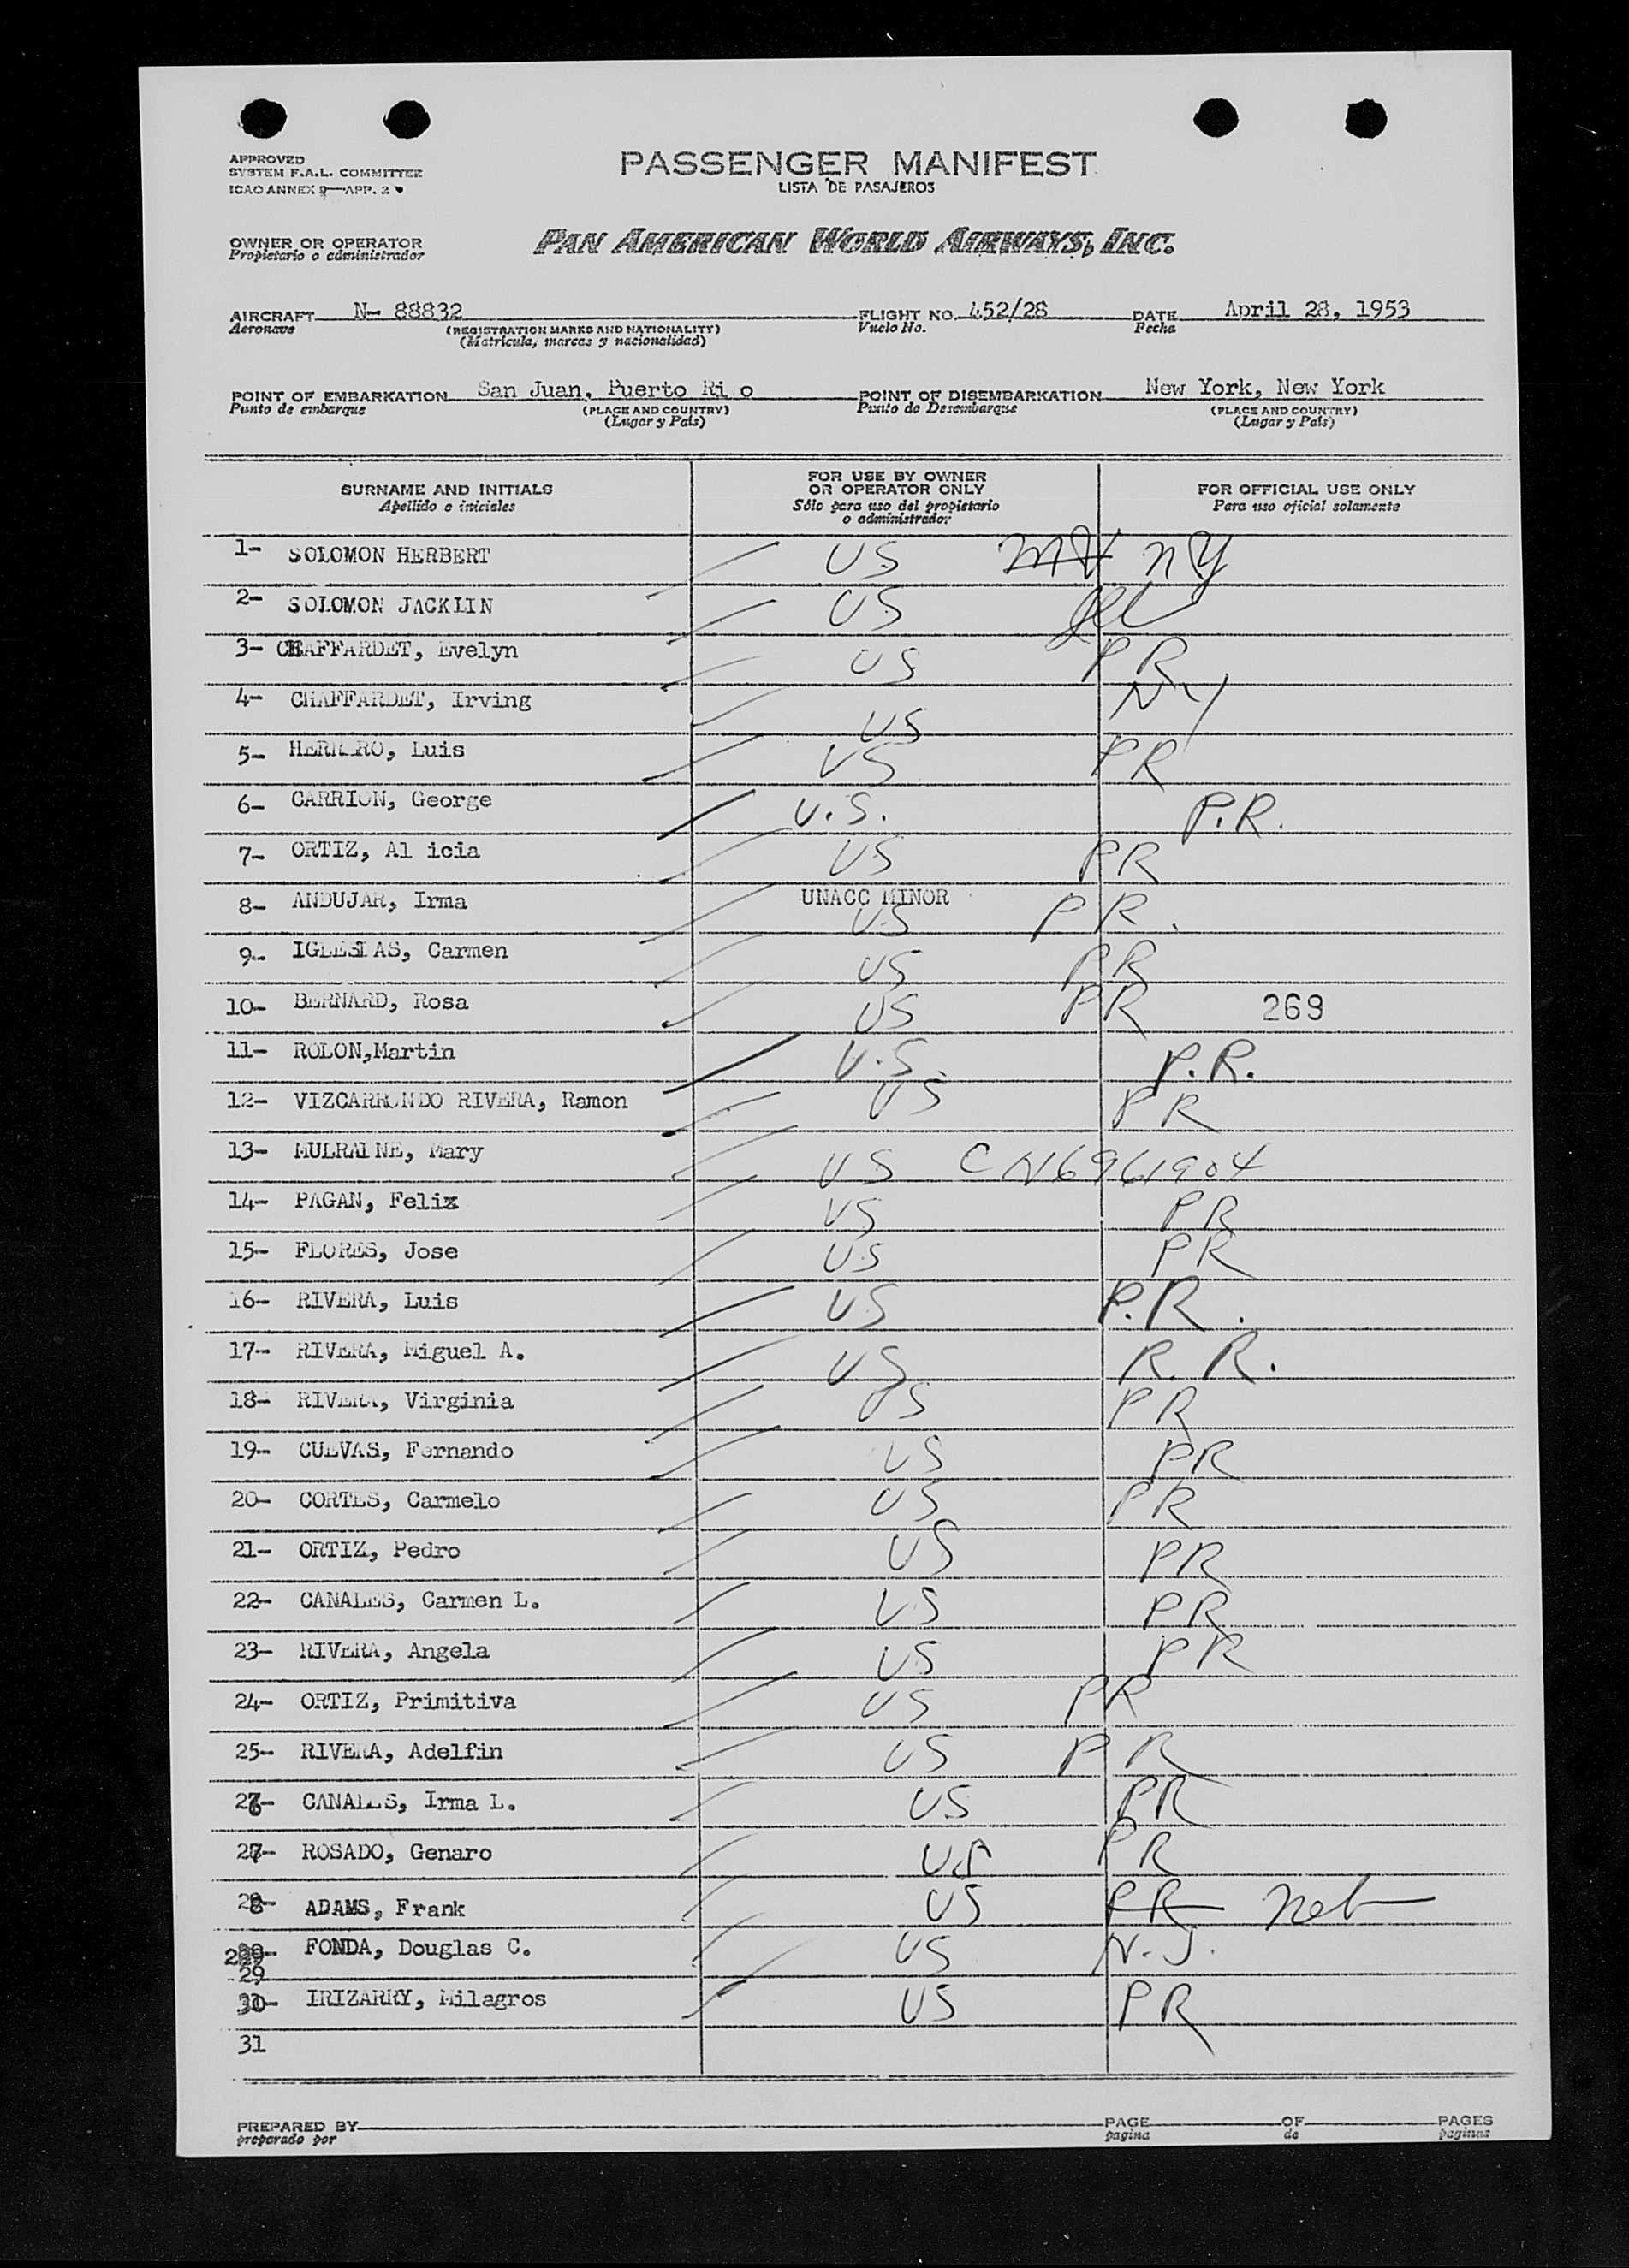 APPROVED
SYSTEM F.A.L. COMMITTEE
ICAO ANNEX 9—APP. 2
PASSENGER MANIFEST
LISTA DE PASAJEROS
OWNER OR OPERATOR
Propietario o administrador
PAN AMERICAN WORLD AIRWAYS, INC.
AIRCRAFT N- 88832 FLIGHT NO. 452/28 DATE April 28, 1953
Aeronave (REGISTRATION MARKS AND NATIONALITY) Vuelo No. Fecha
(Matricula, marcas y nacionalidad)
POINT OF EMBARKATION San Juan, Puerto Ri o POINT OF DISEMBARKATION New York, New York
Punto de embarque (PLACE AND COUNTRY) Punto de Desembarque (PLACE AND COUNTRY)
(Lugar y País) (Lugar y País)
SURNAME AND INITIALS
Apellido o iniciales
FOR USE BY OWNER
OR OPERATOR ONLY
Sólo para uso del propietario
o administrador
FOR OFFICIAL USE ONLY
Para uso oficial solamente
1- SOLOMON HERBERT US NY
2- SOLOMON JACKLIN US
3- CHAFFARDET, Evelyn US PR
4- CHAFFARDET, Irving US NY
5- HERRERO, Luis US PR
6- CARRION, George U.S. P.R.
7- ORTIZ, Al icia US PR
8- ANDUJAR, Irma UNACC MINOR US PR.
9- IGLESIAS, Carmen US PR
10- BERNARD, Rosa US PR 269
11- ROLON,Martin U.S. P.R.
12- VIZCARRONDO RIVERA, Ramon US PR
13- MULRAINE, Mary US CN6961904
14- PAGAN, Felix US PR
15- FLORES, Jose US PR
16- RIVERA, Luis US P.R.
17- RIVERA, Miguel A. US R.R.
18- RIVERA, Virginia US PR
19- CUEVAS, Fernando US PR
20- CORTES, Carmelo US PR
21- ORTIZ, Pedro US PR
22- CANALES, Carmen L. US PR
23- RIVERA, Angela US PR
24- ORTIZ, Primitiva US PR
25- RIVERA, Adelfin US PR
26- CANALES, Irma L. US PR
27- ROSADO, Genaro U.S PR
28- ADAMS, Frank US PR Neb
29- FONDA, Douglas C. US N.J.
29
30- IRIZARRY, Milagros US PR
31
PREPARED BY PAGE OF PAGES
preparado por pagina de paginas